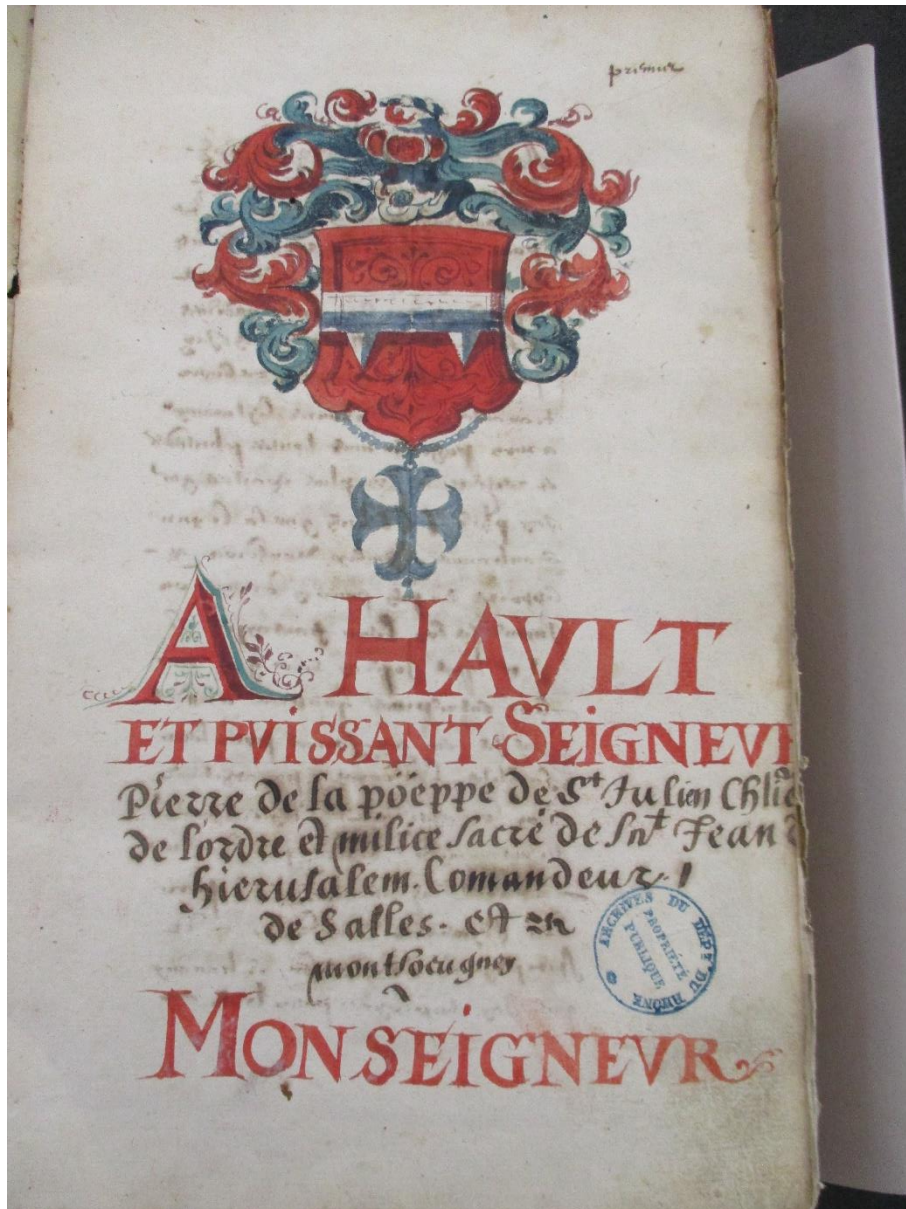 primus
A HAVLT
ET PVISSANT SEIGNEVR
Pierre de la poëppe de St Julien Chlīe
de lordre et milice sacré de Snt Jean d
hierusalem. Comandeur.
de Salles. et
MONSEIGNEVR
ARCHIVES DU DÉPT DU RHÔNE
PROPRIÉTÉ
PUBLIQUE